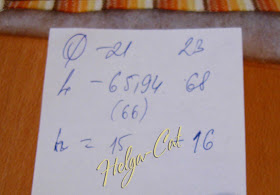 Ø - 21 23
L - 65,94 68
(66)
h = 15 16
Helgw-Cat